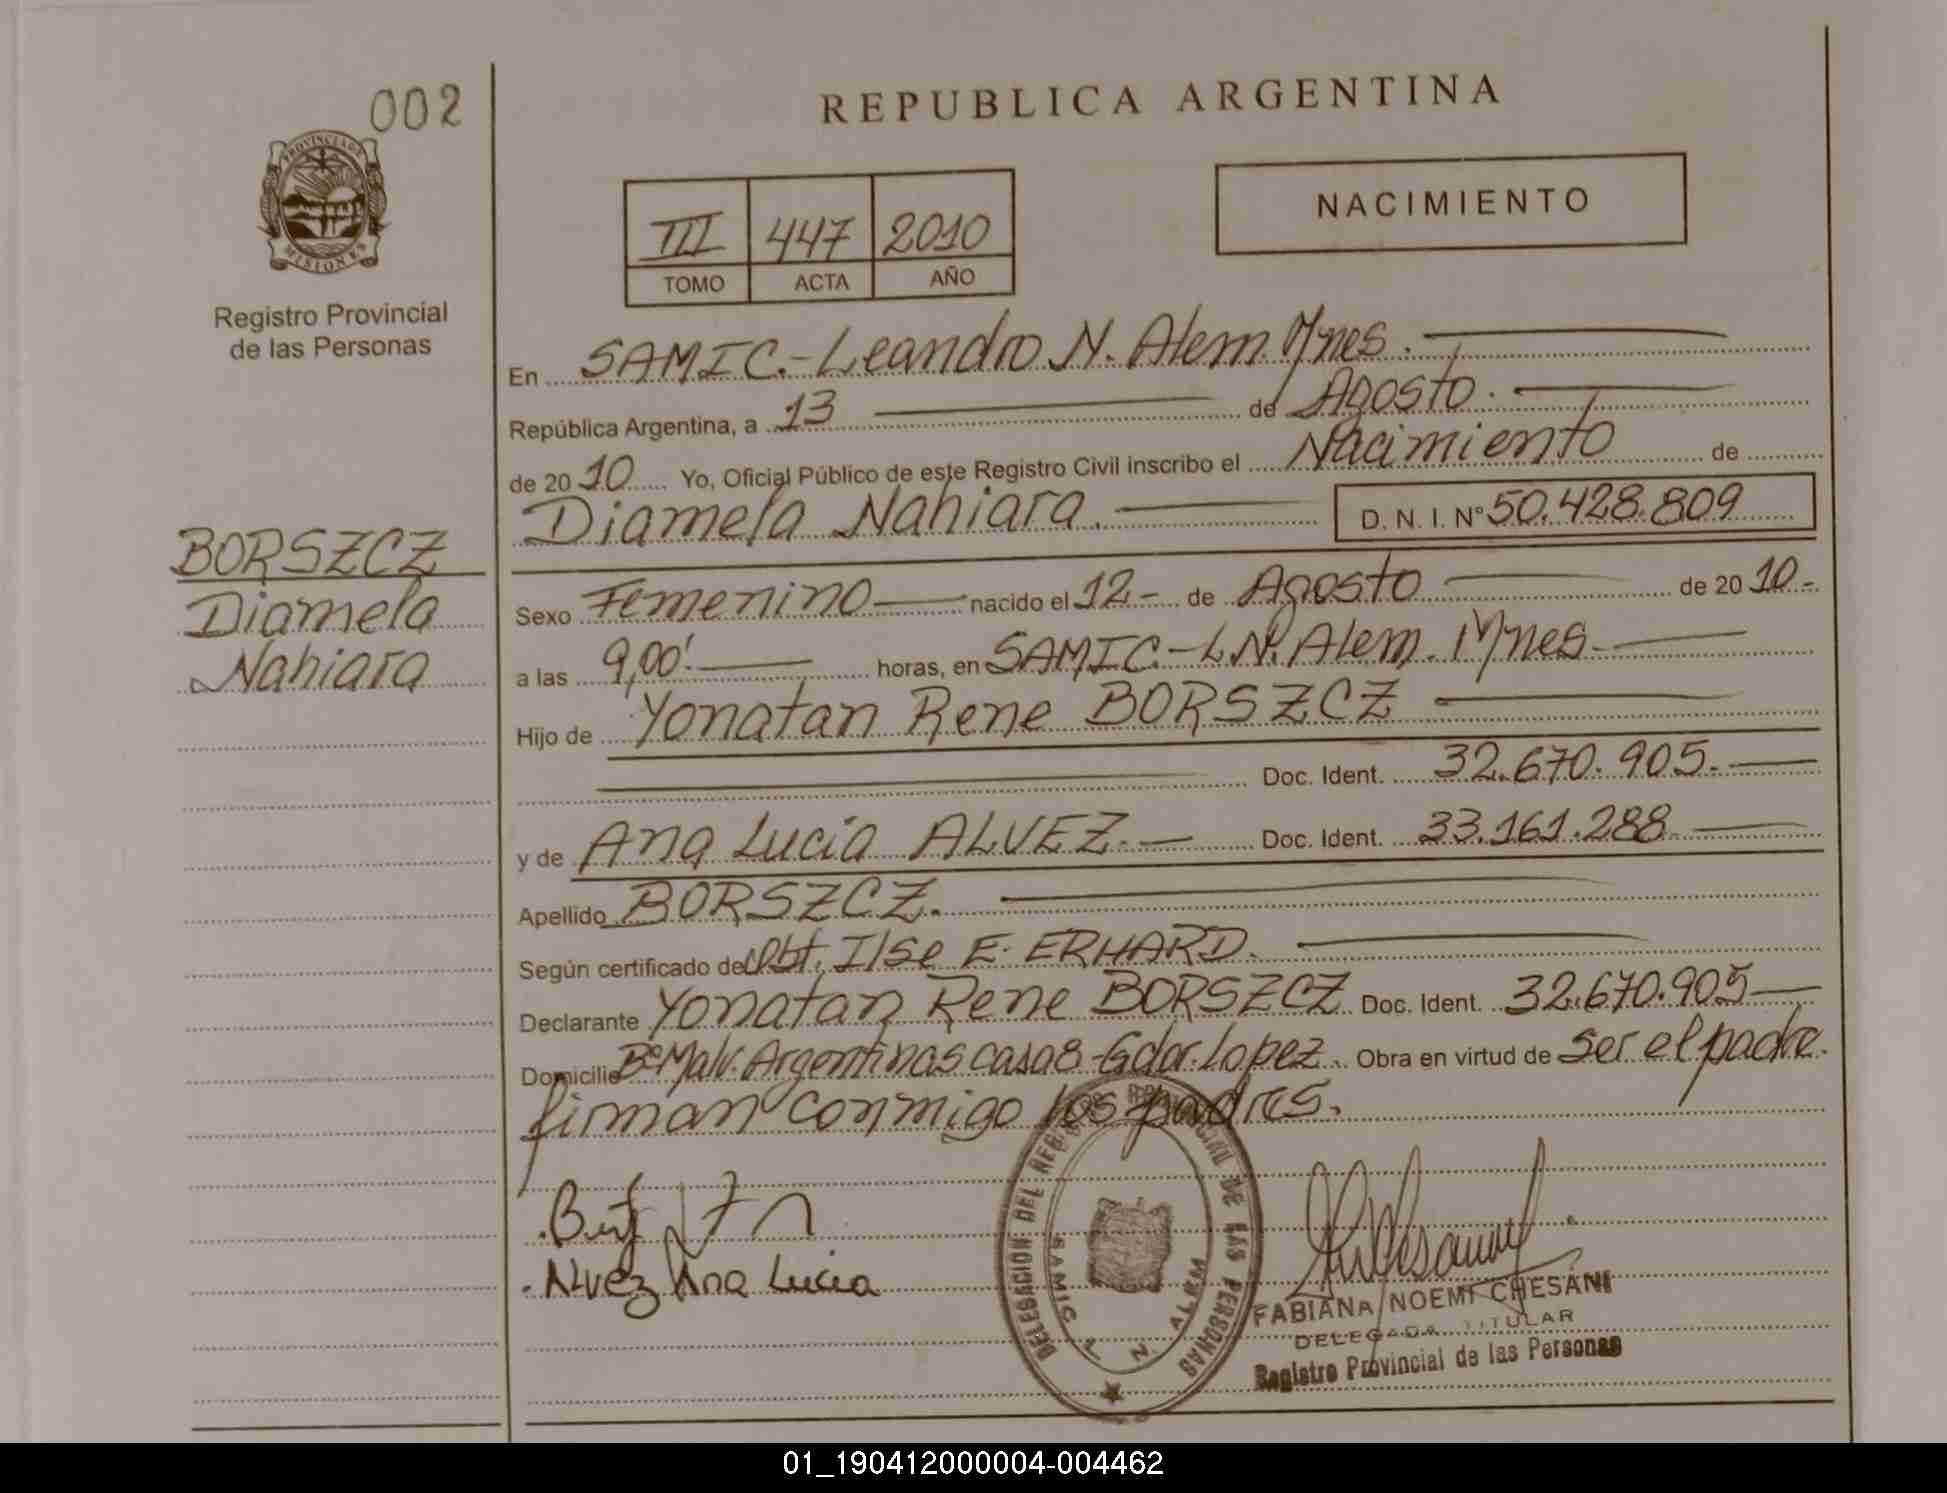 002
REPUBLICA ARGENTINA
PROVINCIA DE
MISIONES
III 447 2010
TOMO ACTA AÑO
NACIMIENTO
Registro Provincial
de las Personas
En SAMIC.-Leandro N. Alem. Mnes.
República Argentina, a 13 de Agosto.
de 20 10 Yo, Oficial Público de este Registro Civil inscribo el Nacimiento de
Diamela Nahiara. D. N. I. Nº 50.428.809
BORSZCZ
Diamela
Nahiara
Sexo Femenino nacido el 12- de Agosto de 20 10-
a las 9,00'. horas, en SAMIC.-L.N. Alem. Mnes.
Hijo de Yonatan Rene BORSZCZ
Doc. Ident. 32.670.905.
y de Ana Lucia ALVEZ. Doc. Ident. 33.161.288
Apellido BORSZCZ.
Según certificado de Obt. Ilse E. ERHARD.
Declarante Yonatan Rene BORSZCZ Doc. Ident. 32.670.905
Domicilio Bº Malv. Argentinas casa 8 -Gdor. Lopez. Obra en virtud de ser el padre.
firman conmigo los padres.
Alvez Ana Lucia
DELEGACION DEL REGISTRO PROVINCIAL DE LAS PERSONAS
SAMIC L. N. ALEM
FABIANA NOEMI CHESANI
DELEGADA TITULAR
Registro Provincial de las Personas
01_190412000004-004462